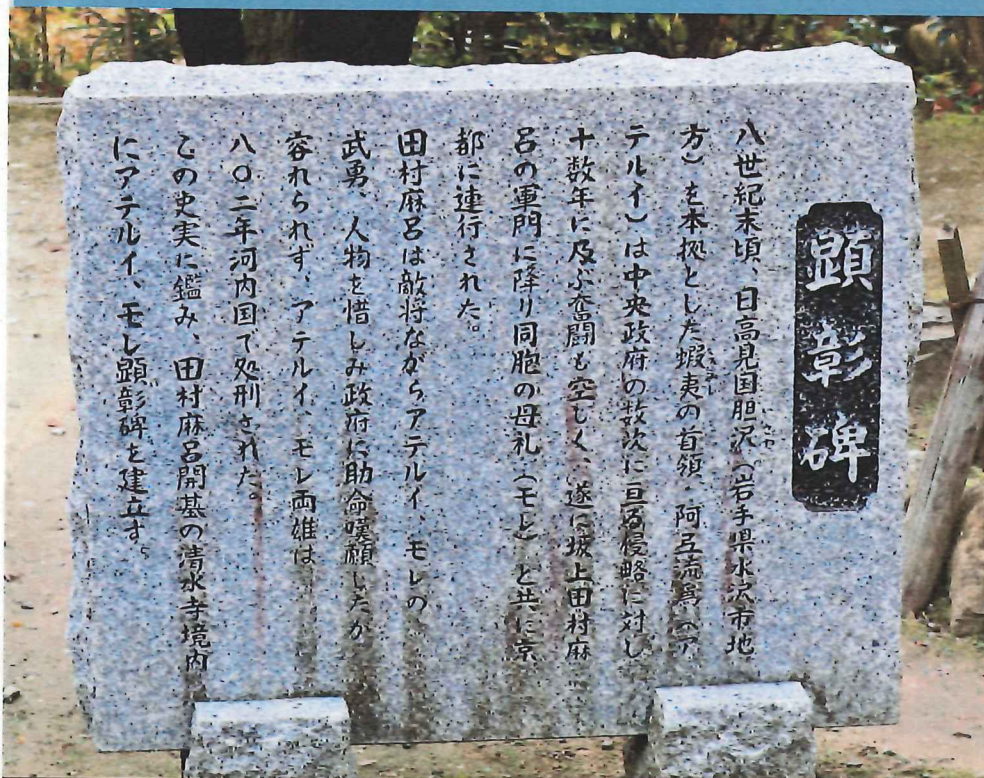 顕彰碑
八世紀末頃、日高見国胆沢(岩手県水沢市地
方)を本拠とした蝦夷の首領・阿弖流為(ア
テルイ)は中央政府の数次に亘る侵略に対し
十数年に及ぶ奮闘も空しく、遂に坂上田村麻
呂の軍門に降り同胞の母礼(モレ)と共に京
都に連行された。
田村麻呂は敵将ながらアテルイ、モレの
武勇、人物を惜しみ政府に助命嘆願したが
容れられず、アテルイ、モレ両雄は
八〇二年河内国で処刑された。
この史実に鑑み、田村麻呂開基の清水寺境内
にアテルイ、モレ顕彰碑を建立す。